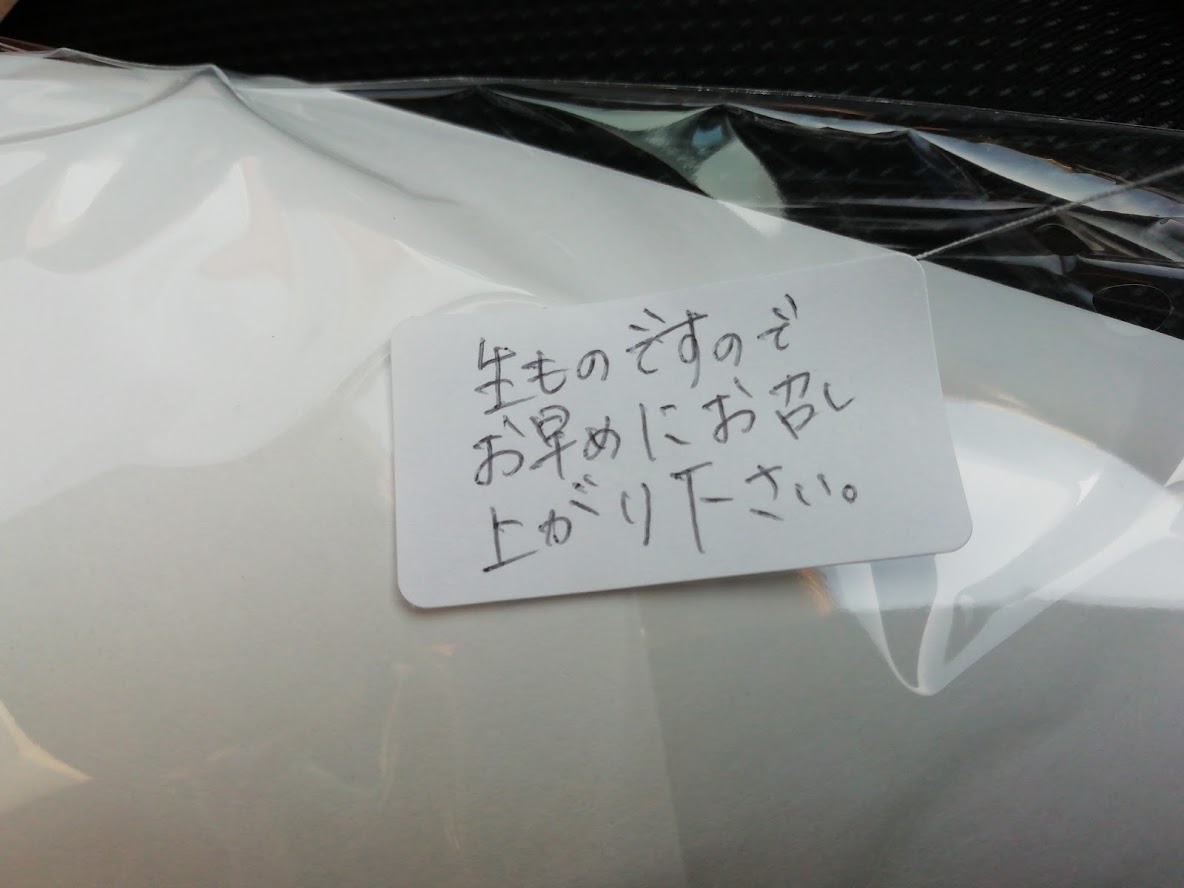 生ものですので
お早めにお召し
上がり下さい。